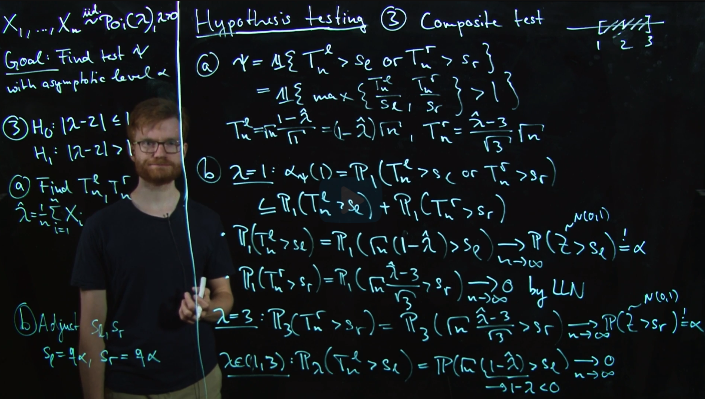 X₁, ..., Xₙ iid~ Poi(λ), λ>0
Goal: Find test ψ
with asymptotic level α
③ H₀: |λ-2| ≤ 1
H₁: |λ-2| > 1
ⓐ Find Tₙˡ, Tₙʳ
λ̂ = 1/n Σᵢ₌₁ⁿ Xᵢ
ⓑ Adjust sₗ, sᵣ
sₗ = qα, sᵣ = qα
Hypothesis testing ③ Composite test
1 2 3
ⓐ ψ = 𝟙{Tₙˡ > sₗ or Tₙʳ > sᵣ}
= 𝟙{max{Tₙˡ/sₗ, Tₙʳ/sᵣ} > 1}
Tₙˡ = √n (1-λ̂)/√1 = (1-λ̂)√n, Tₙʳ = (λ̂-3)/√3 √n
ⓑ λ=1: α_ψ(1) = ℙ₁(Tₙˡ > sₗ or Tₙʳ > sᵣ)
≤ ℙ₁(Tₙˡ > sₗ) + ℙ₁(Tₙʳ > sᵣ)
~N(0,1)
• ℙ₁(Tₙˡ > sₗ) = ℙ₁(√n(1-λ̂) > sₗ) →_{n→∞} ℙ(Z > sₗ) =! α
• ℙ₁(Tₙʳ > sᵣ) = ℙ₁(√n (λ̂-3)/√3 > sᵣ) →_{n→∞} 0 by LLN
~N(0,1)
λ=3: ℙ₃(Tₙʳ > sᵣ) = ℙ₃(√n (λ̂-3)/√3 > sᵣ) →_{n→∞} ℙ(Z > sᵣ) =! α
λ∈(1,3): ℙ_λ(Tₙˡ > sₗ) = ℙ(√n (1-λ̂) > sₗ) →_{n→∞} 0
→ 1-λ < 0